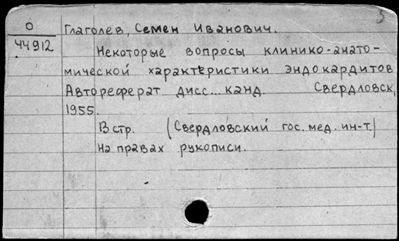 О
44912
Глаголев, Семен Иванович.
Некоторые вопросы клинико-анато-
мической характеристики эндокардитов
Автореферат дисс... канд. Свердловск,
1955
(Свердловский гос. мед. ин-т.)
На правах рукописи.